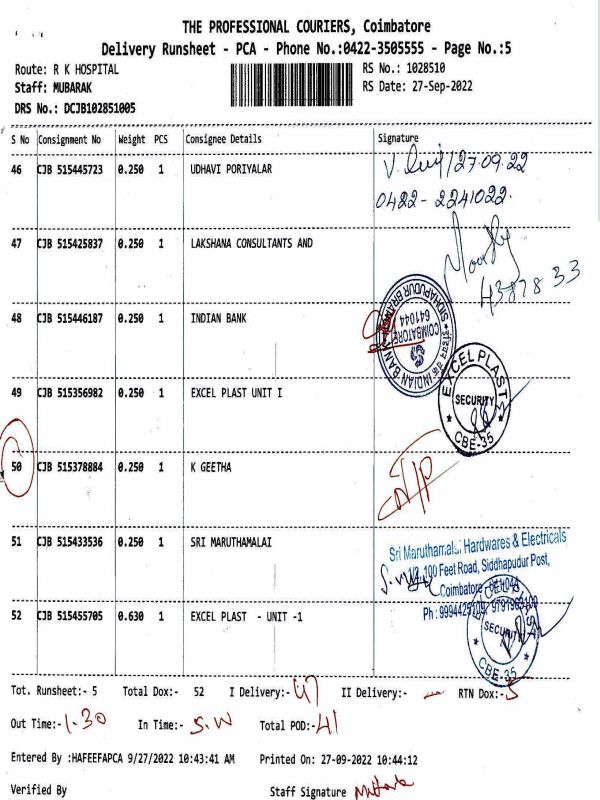 THE PROFESSIONAL COURIERS, Coimbatore
Delivery Runsheet - PCA - Phone No.:0422-3505555 - Page No.:5
Route: R K HOSPITAL RS No.: 1028510
Staff: MUBARAK RS Date: 27-Sep-2022
DRS No.: DCJB102851005
S No Consignment No Weight PCS Consignee Details Signature
46 CJB 515445723 0.250 1 UDHAVI PORIYALAR 27.09.22
0422-2241022.
47 CJB 515425837 0.250 1 LAKSHANA CONSULTANTS AND
48 CJB 515446187 0.250 1 INDIAN BANK
INDIAN BANK
SIDHAPUDUR BRANCH
COIMBATORE
641044
49 CJB 515356982 0.250 1 EXCEL PLAST UNIT I
EXCEL PLAST
SECURITY
CBE-35
50 CJB 515378884 0.250 1 K GEETHA
51 CJB 515433536 0.250 1 SRI MARUTHAMALAI
Sri Maruthamalai Hardwares & Electricals
100 Feet Road, Siddhapudur Post,
Coimbatore
52 CJB 515455705 0.630 1 EXCEL PLAST - UNIT -1
SECURITY
CBE-35
Tot. Runsheet:- 5 Total Dox:- 52 I Delivery:- 47 II Delivery:- — RTN Dox:- 5
Out Time:- 1.30 In Time:- Total POD:- 41
Entered By :HAFEEFAPCA 9/27/2022 10:43:41 AM Printed On: 27-09-2022 10:44:12
Verified By Staff Signature